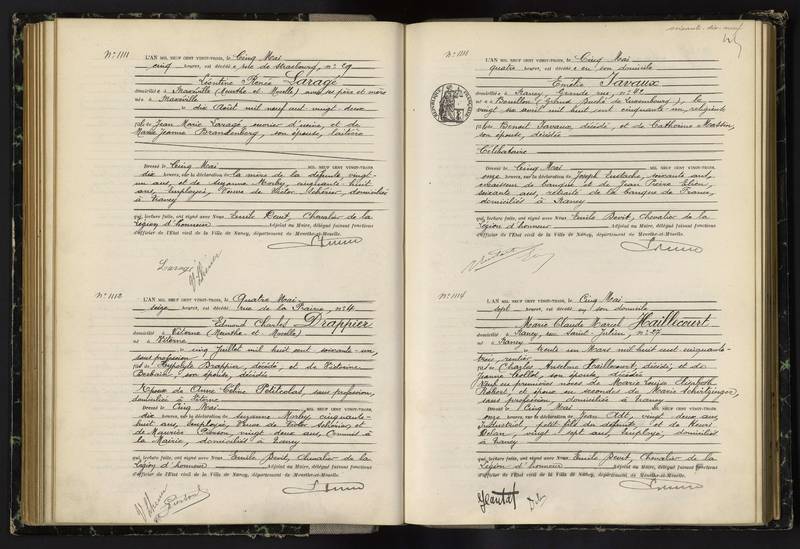 soixante-dix-neuf
N° 1111
L'AN MIL NEUF CENT VINGT-TROIS, le Cinq Mai
cinq heures, est décédée rue de Strasbourg, n° 29
Léontine Renée Laragé
domiciliée à Maxéville (Meurthe et Moselle) avec ses père et mère
née à Maxéville
le dix Août mil neuf cent vingt deux
fille de Jean Marie Laragé, ouvrier d'usine, et de
Marie Jeanne Brandenberg, son épouse, laitière
Dressé le Cinq Mai MIL NEUF CENT VINGT-TROIS,
dix heures, sur la déclaration de la mère de la défunte, vingt-
un ans, et de Suzanne Morley, cinquante huit
ans, employée, Veuve de Victor, domiciliées
à Nancy
qui, lecture faite, ont signé avec Nous Emile Devit, Chevalier de la
Légion d'honneur Adjoint au Maire, délégué faisant fonctions
d'officier de l'Etat civil de la Ville de Nancy, département de Meurthe-et-Moselle.
Laragé
N° 1112
L'AN MIL NEUF CENT VINGT-TROIS, le Quatre Mai
seize heures, est décédé rue de la Prairie, n° 4
Edmond Charles Drappier
domicilié à Viterne (Meurthe et Moselle)
né à Viterne
le cinq Juillet mil huit cent soixante-un,
sans profession
fils de Hypolyte Drappier, décédé, et de Victorine
son épouse, décédée
Epoux de Anne Céline Petitcolas, sans profession,
domiciliée à Viterne
Dressé le Cinq Mai MIL NEUF CENT VINGT-TROIS,
dix heures, sur la déclaration de Suzanne Morley, cinquante-
huit ans, employée, Veuve de Victor, et
de Maurice, vingt deux ans, Commis à
la Mairie, domiciliés à Nancy
qui, lecture faite, ont signé avec Nous Emile Devit, Chevalier de la
Légion d'honneur Adjoint au Maire, délégué faisant fonctions
d'officier de l'Etat civil de la Ville de Nancy, département de Meurthe-et-Moselle.
L'AN MIL NEUF CENT VINGT-TROIS, le Cinq Mai
quatre heures, est décédée en son domicile
Emélie Javaux
domiciliée à Nancy, Grande rue, n°
née à Bouillon (Grand Duché de Luxembourg), le
vingt six avril mil huit cent cinquante un, religieuse
fille de Benoit Javaux, décédé, et de Catherine Massin,
son épouse, décédée
Célibataire
Dressé le Cinq Mai MIL NEUF CENT VINGT-TROIS,
onze heures, sur la déclaration de Joseph Eustache, soixante ans,
encaisseur de banque, et de Jean Pierre,
soixante ans, retraité de la Banque de France,
domiciliés à Nancy
qui, lecture faite, ont signé avec Nous Emile Devit, Chevalier de la
Légion d'honneur Adjoint au Maire, délégué faisant fonctions
d'officier de l'Etat civil de la Ville de Nancy, département de Meurthe-et-Moselle.
N° 1114
L'AN MIL NEUF CENT VINGT-TROIS, le Cinq Mai
sept heures, est décédé en son domicile
Marie Claude Marcel Haillecourt
domicilié à Nancy, rue Saint Julien, n° 27
né à Nancy
le trente un Mars mil huit cent cinquante-
trois, rentier
fils de Charles Anselme Haillecourt, décédé, et de
Jeanne Collot, son épouse, décédée
Veuf en premières noces de Marie Louise
et époux en secondes de Marie
sans profession, domiciliée à Nancy
Dressé le Cinq Mai MIL NEUF CENT VINGT-TROIS,
onze heures, sur la déclaration de Jean, vingt deux ans,
Industriel, petit fils du défunt, et de Henri
vingt sept ans, employé, domiciliés
à Nancy
qui, lecture faite, ont signé avec Nous Emile Devit, Chevalier de la
Légion d'honneur Adjoint au Maire, délégué faisant fonctions
d'officier de l'Etat civil de la Ville de Nancy, département de Meurthe-et-Moselle.